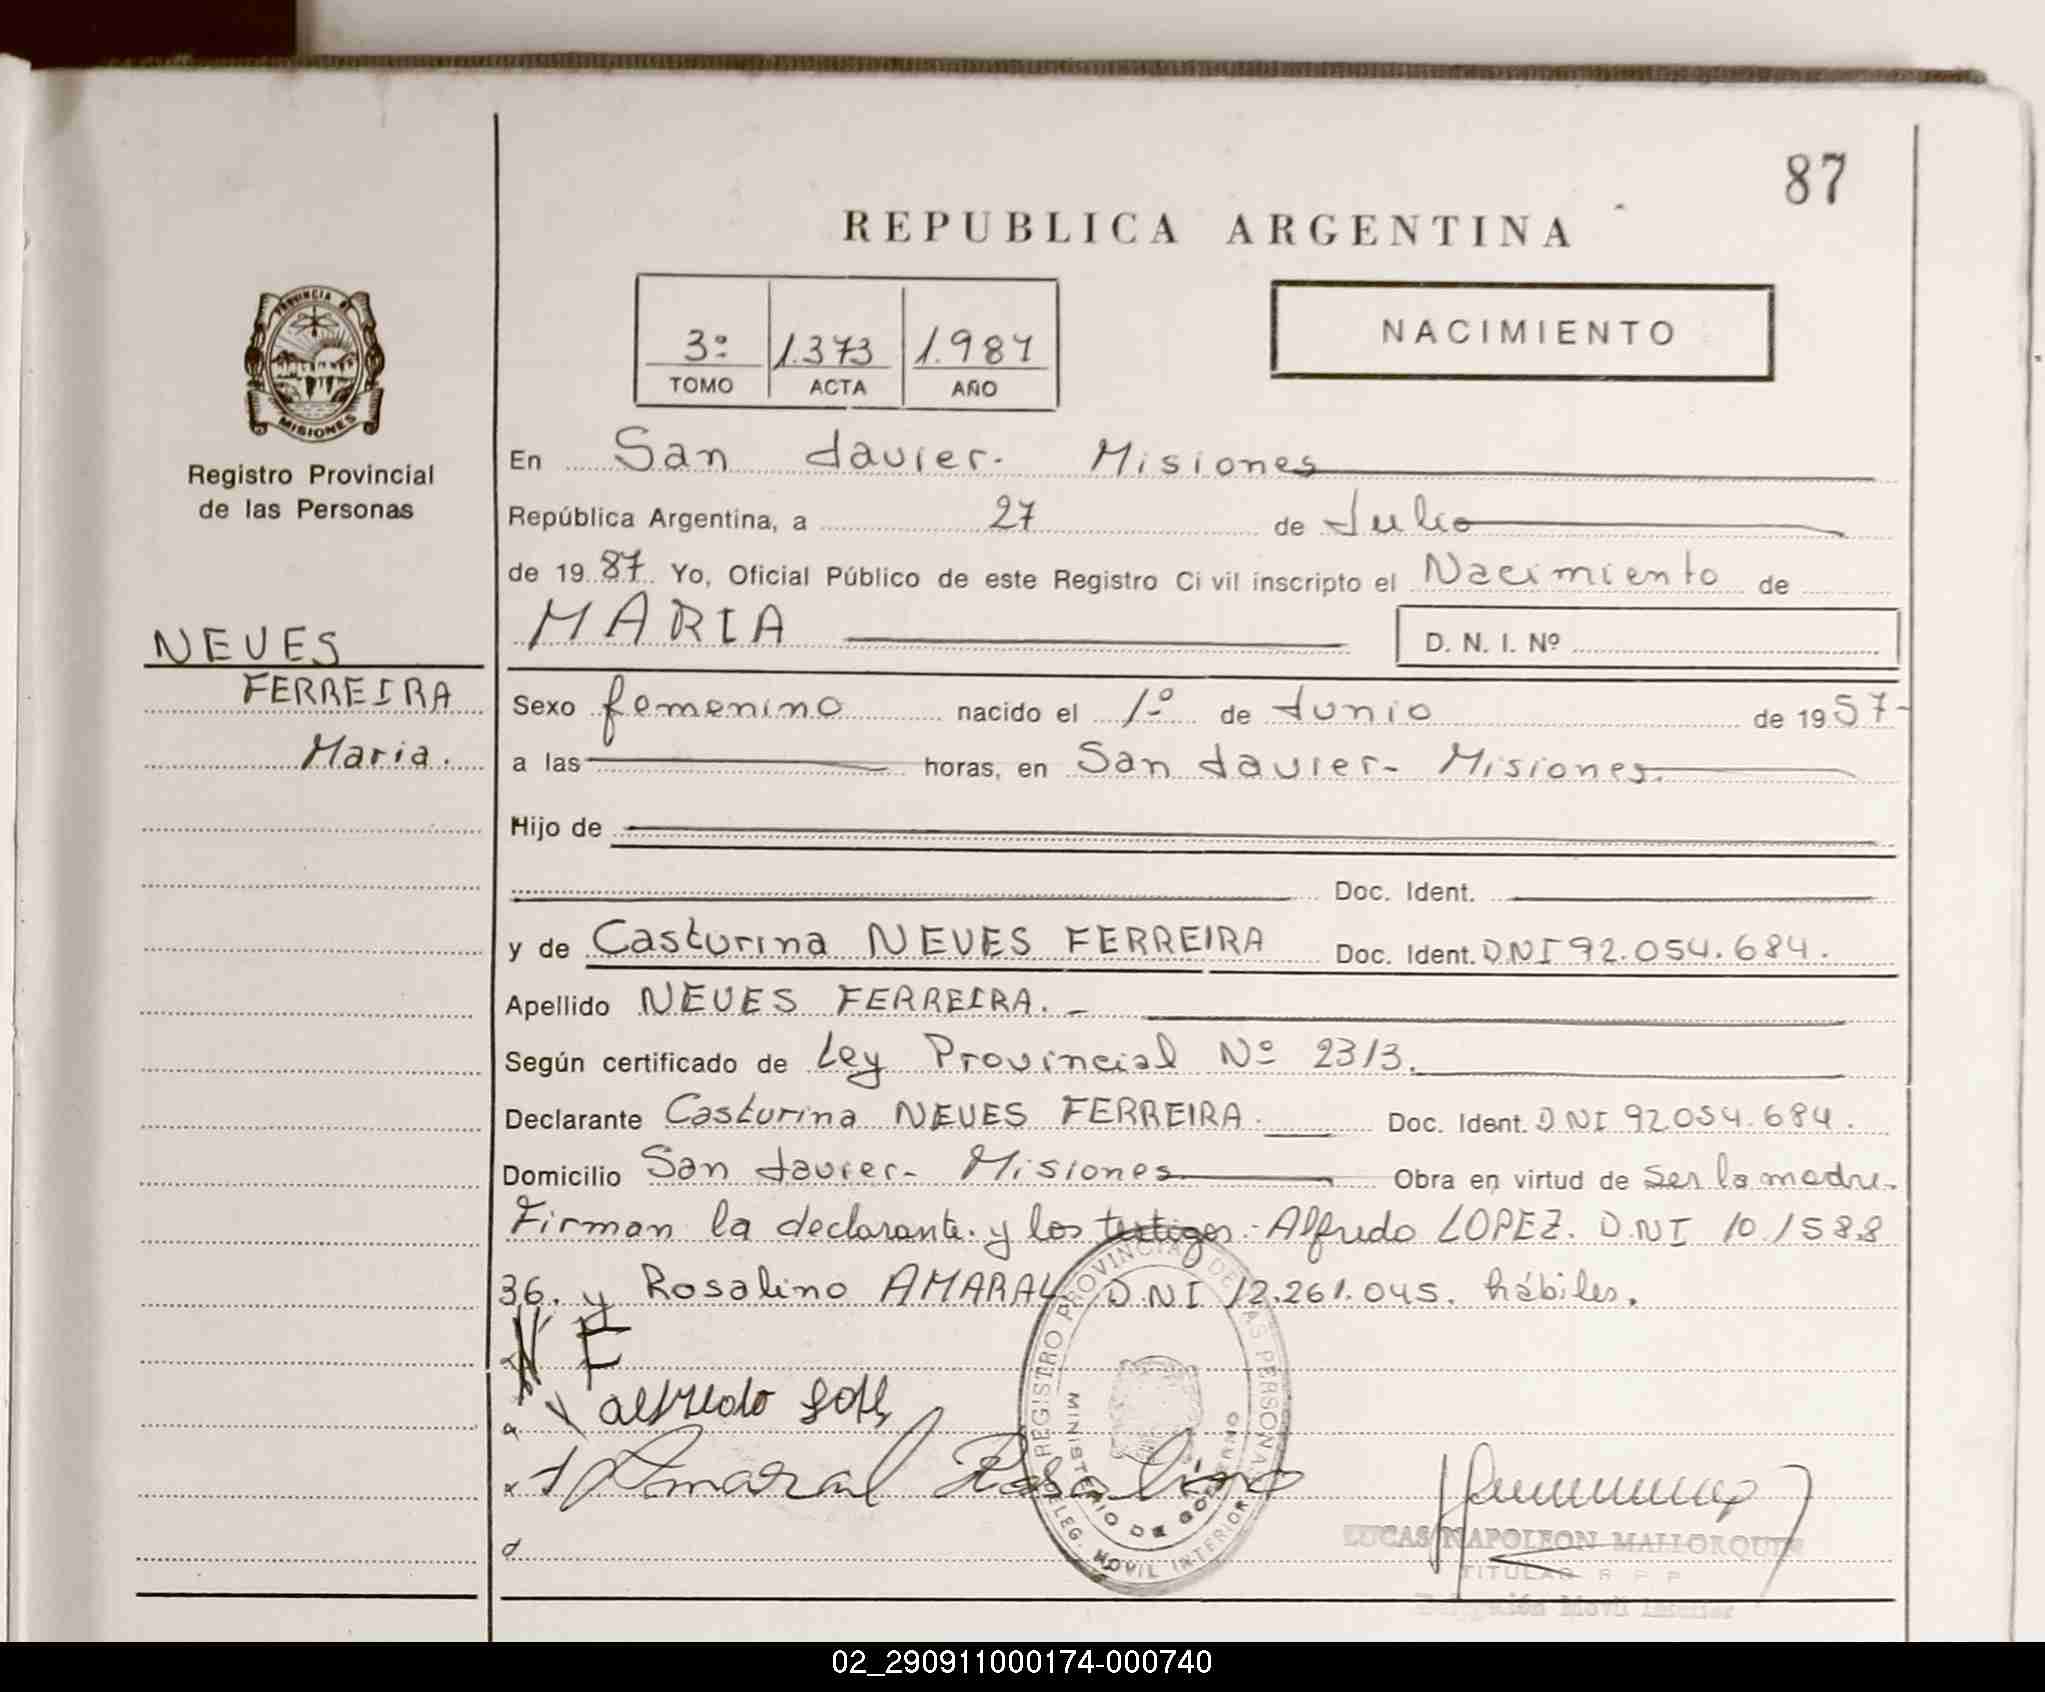 87
REPUBLICA ARGENTINA
3º 1.373 1.987
TOMO ACTA AÑO
NACIMIENTO
PROVINCIA DE
MISIONES
Registro Provincial
de las Personas
NEVES
FERREIRA
Maria.
En San Javier. Misiones
República Argentina, a 27 de Julio
de 19 87 Yo, Oficial Público de este Registro Civil inscripto el Nacimiento de
MARIA D. N. I. Nº
Sexo femenino nacido el 1º de Junio de 19 57-
a las horas, en San Javier- Misiones.
Hijo de
Doc. Ident.
y de Casturina NEVES FERREIRA Doc. Ident. DNI 92.054.684.
Apellido NEVES FERREIRA. -
Según certificado de Ley Provincial Nº 2313.
Declarante Casturina NEVES FERREIRA. Doc. Ident. DNI 92.054.684.
Domicilio San Javier- Misiones Obra en virtud de ser la madre.
Firman la declarante. y los testigos. Alfredo LOPEZ. DNI 10.1588
36. y Rosalino AMARAL DNI 12.261.045. hábiles.
N F
alfredo
Amaral Rosalino
REGISTRO PROVINCIAL DE LAS PERSONAS
MINISTERIO DE GOBIERNO
DELEG. MOVIL INTERIOR
LUCAS NAPOLEON MALLORQUIN
TITULAR R P P
Delegación Movil Interior
02_290911000174-000740